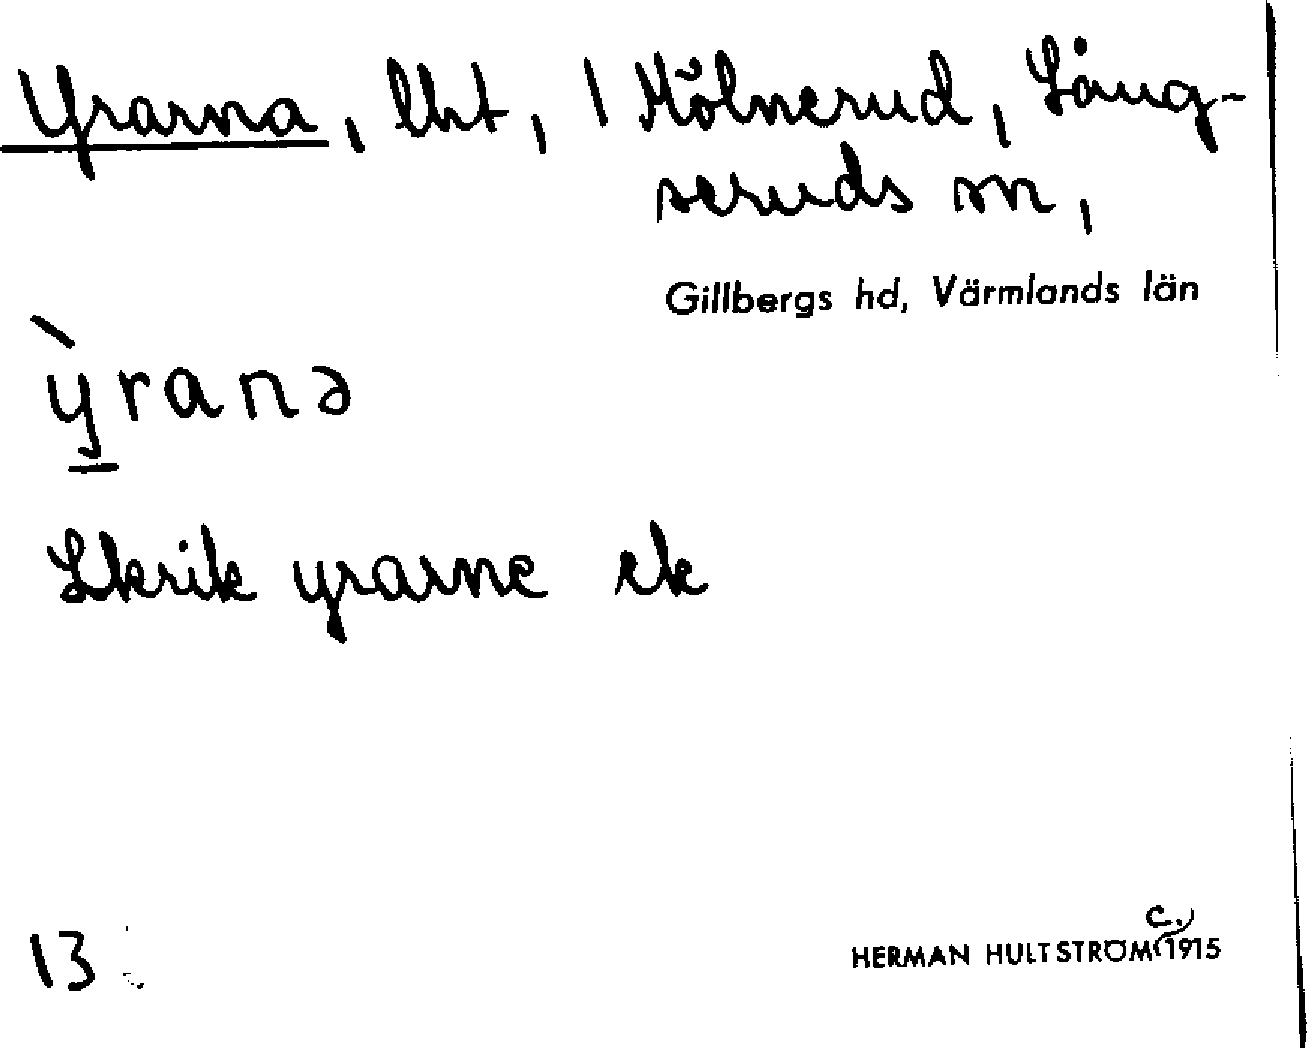 Yrarna, lht, 1 Mölnerud, Lång-
seruds sn,
Gillbergs hd, Värmlands län
ỳranə
Skrik yrarne ek
13
c.
HERMAN HULTSTRÖM 1915